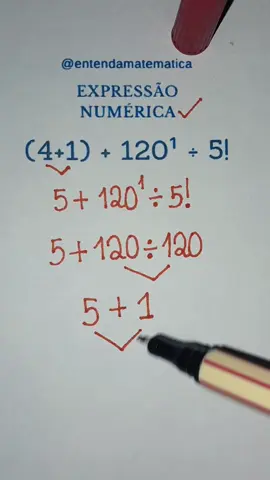 @entendamatematica
EXPRESSÃO
NUMÉRICA
(4+1) + 120¹ ÷ 5!
5 + 120¹ ÷ 5!
5 + 120 ÷ 120
5 + 1